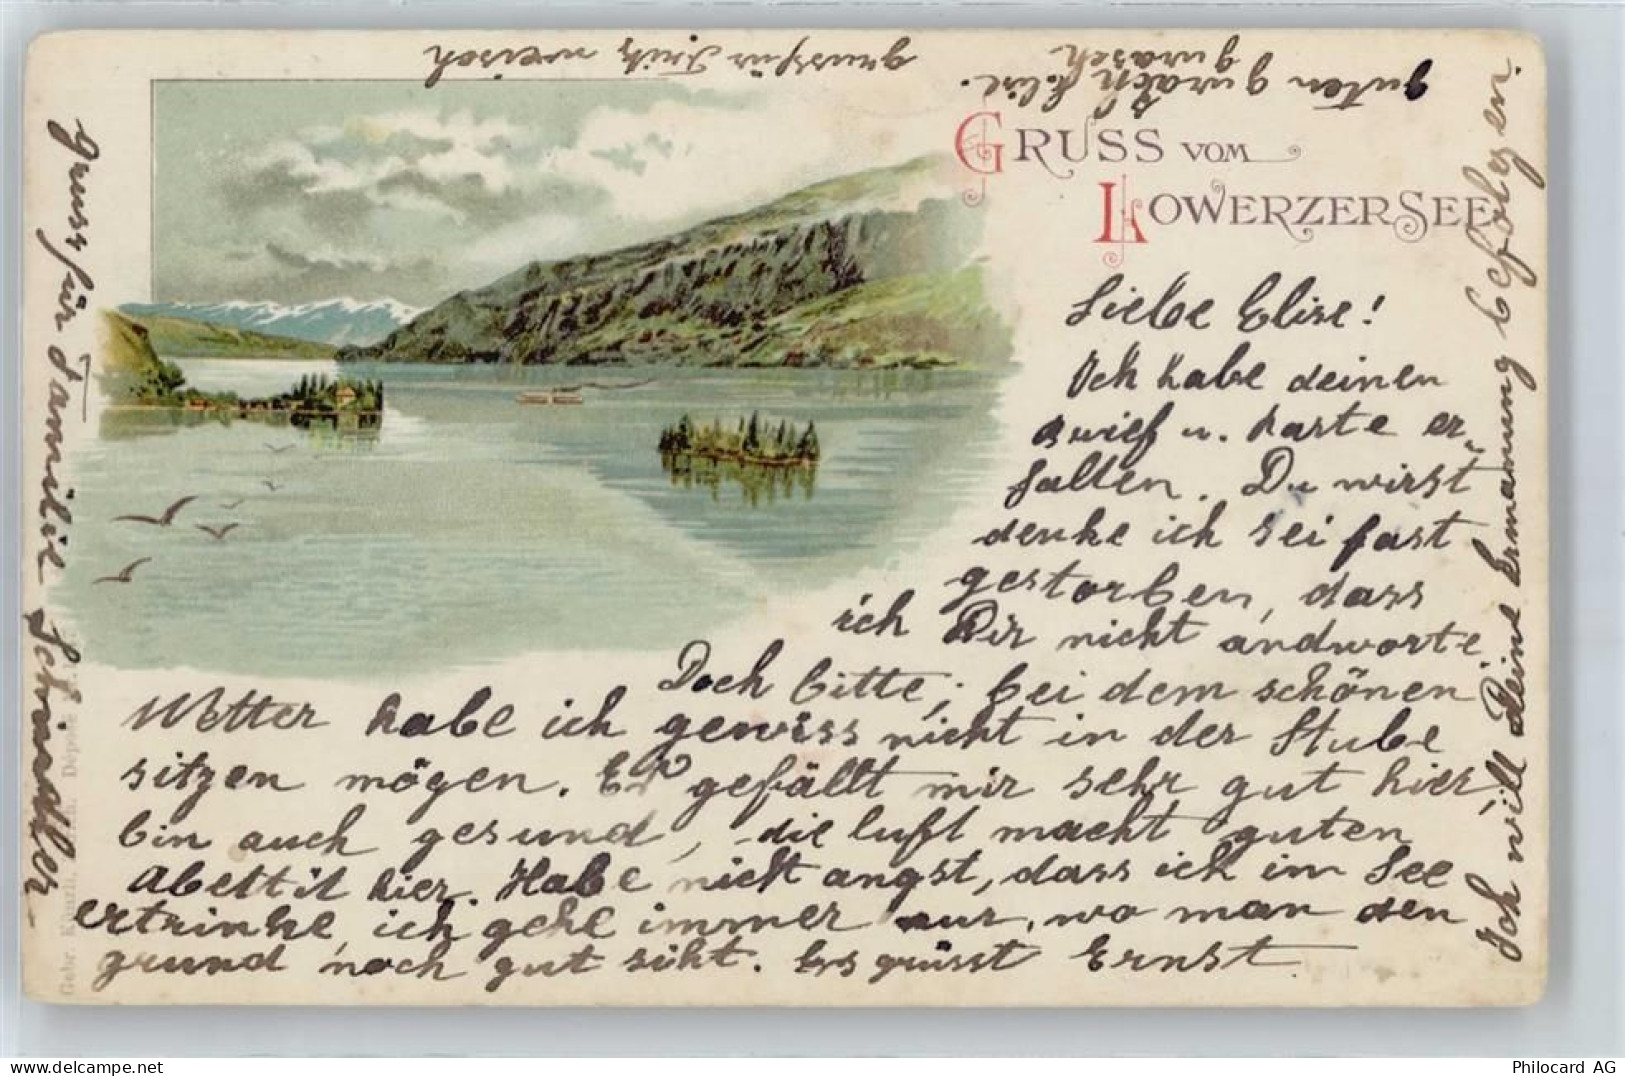 Gruss vom
Lowerzersee
Liebe Elise!
Ich habe deinen
u. Karte er-
halten. Du wirst
denke ich sei fast
gestorben, dass
ich Dir nicht andworte.
Doch bitte; bei dem schönen
Wetter habe ich gewiss nicht in der Stube
sitzen mögen. Es gefällt mir sehr gut hier,
bin auch gesund, die luft macht guten
Abettit hier. Habe nicht angst, dass ich im See
ertrinke, ich gehe immer nur, wo man den
grund noch gut siht. Es grüsst Ernst
Ich will Deine Ermannung befolgen
guten
Elise.
gruss für Fritz
gruss für Familie Schindler
Gebr.
Philocard AG
delcampe.net